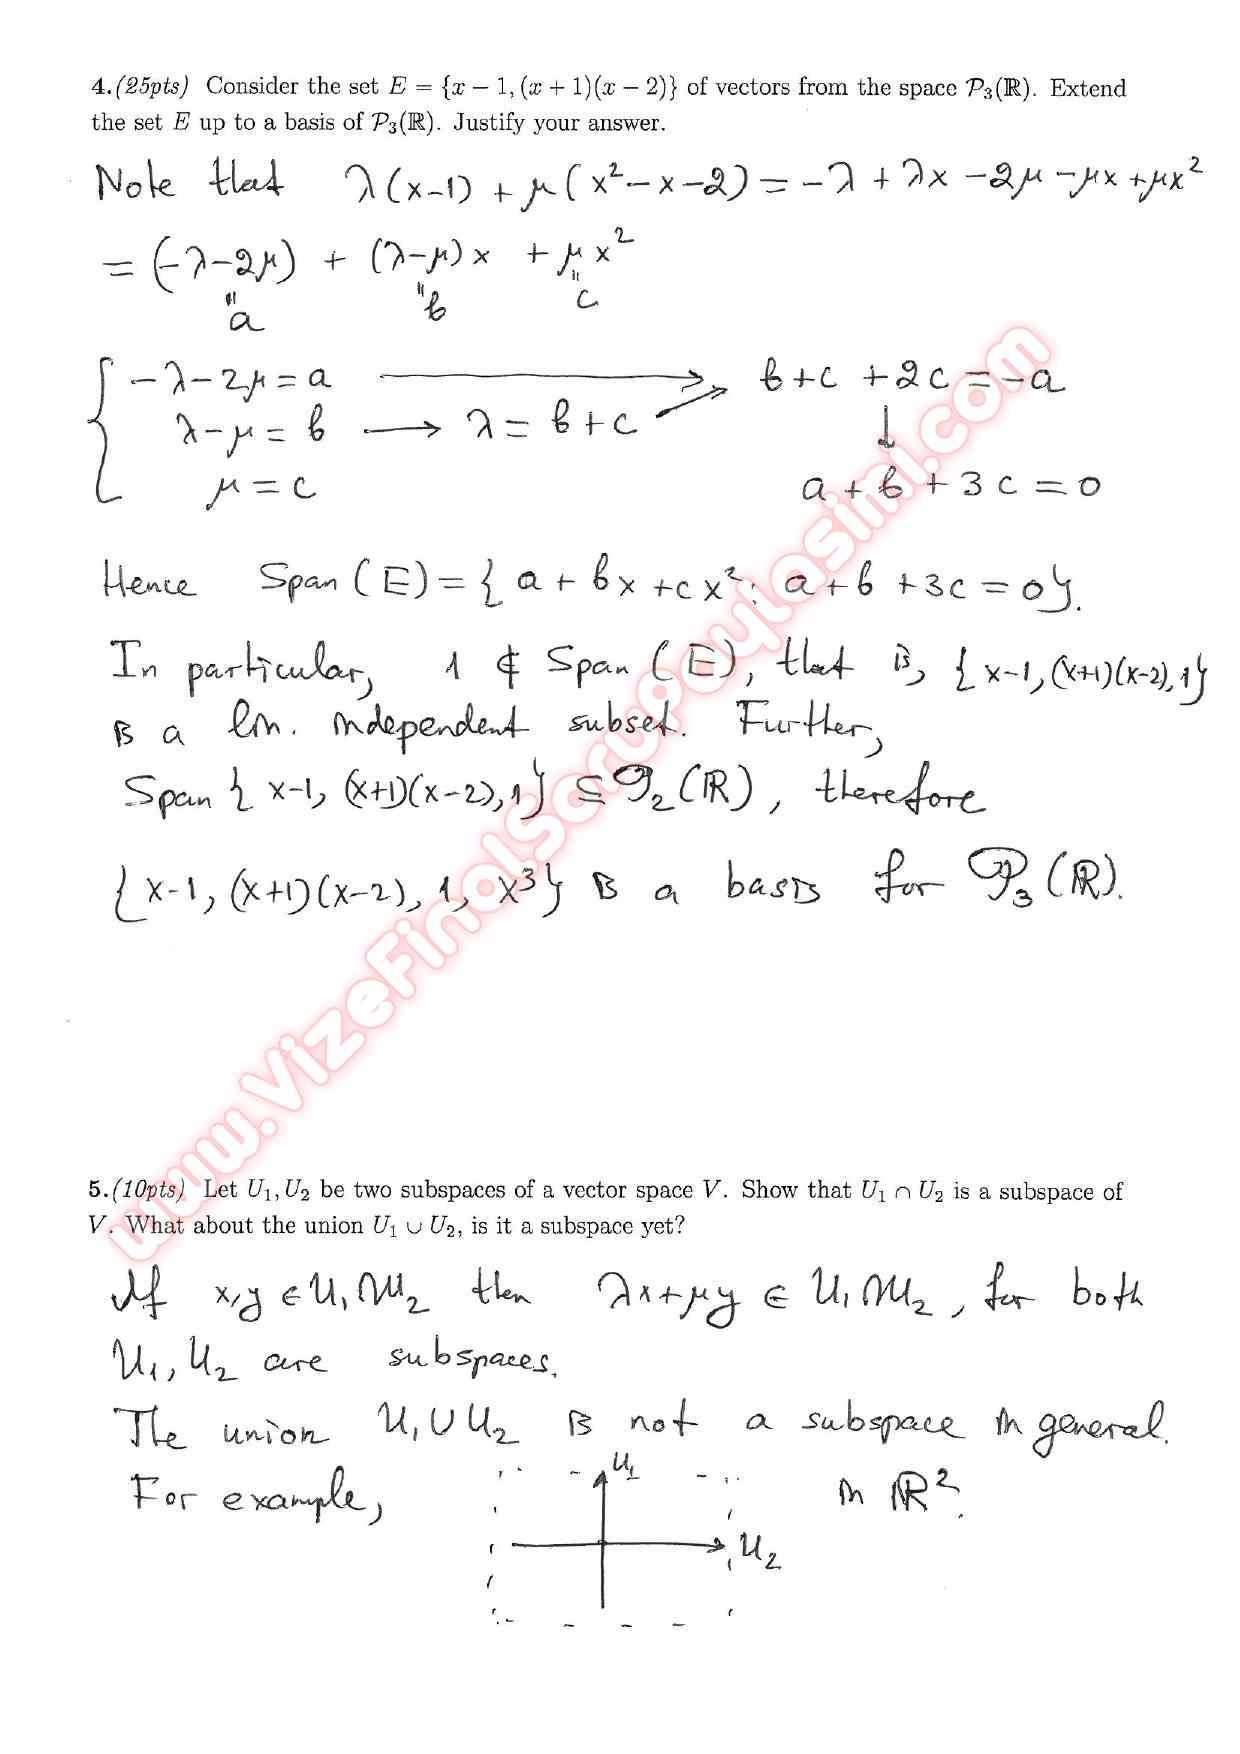 4.(25pts) Consider the set E = {x − 1, (x + 1)(x − 2)} of vectors from the space P₃(ℝ). Extend
the set E up to a basis of P₃(ℝ). Justify your answer.
Note that λ(x-1) + μ(x²-x-2) = -λ + λx -2μ -μx +μx²
= (-λ-2μ) + (λ-μ)x + μx²
" " "
a b c
-λ-2μ = a ⟶ b+c +2c = -a
λ-μ = b ⟶ λ = b+c ↓
μ = c a + b + 3c = 0
Hence Span(E) = { a + bx + cx² : a + b + 3c = 0}.
In particular, 1 ∉ Span(E), that is, {x-1, (x+1)(x-2), 1}
is a lin. independent subset. Further,
Span{x-1, (x+1)(x-2), 1} ⊆ P₂(ℝ), therefore
{x-1, (x+1)(x-2), 1, x³} is a basis for P₃(ℝ).
www.VizeFinalSoruPaylasimi.com
5.(10pts) Let U₁, U₂ be two subspaces of a vector space V. Show that U₁ ∩ U₂ is a subspace of
V. What about the union U₁ ∪ U₂, is it a subspace yet?
If x,y ∈ U₁∩U₂ then λx+μy ∈ U₁∩U₂, for both
U₁, U₂ are subspaces.
The union U₁∪U₂ is not a subspace in general.
For example, U₁ in ℝ².
U₂